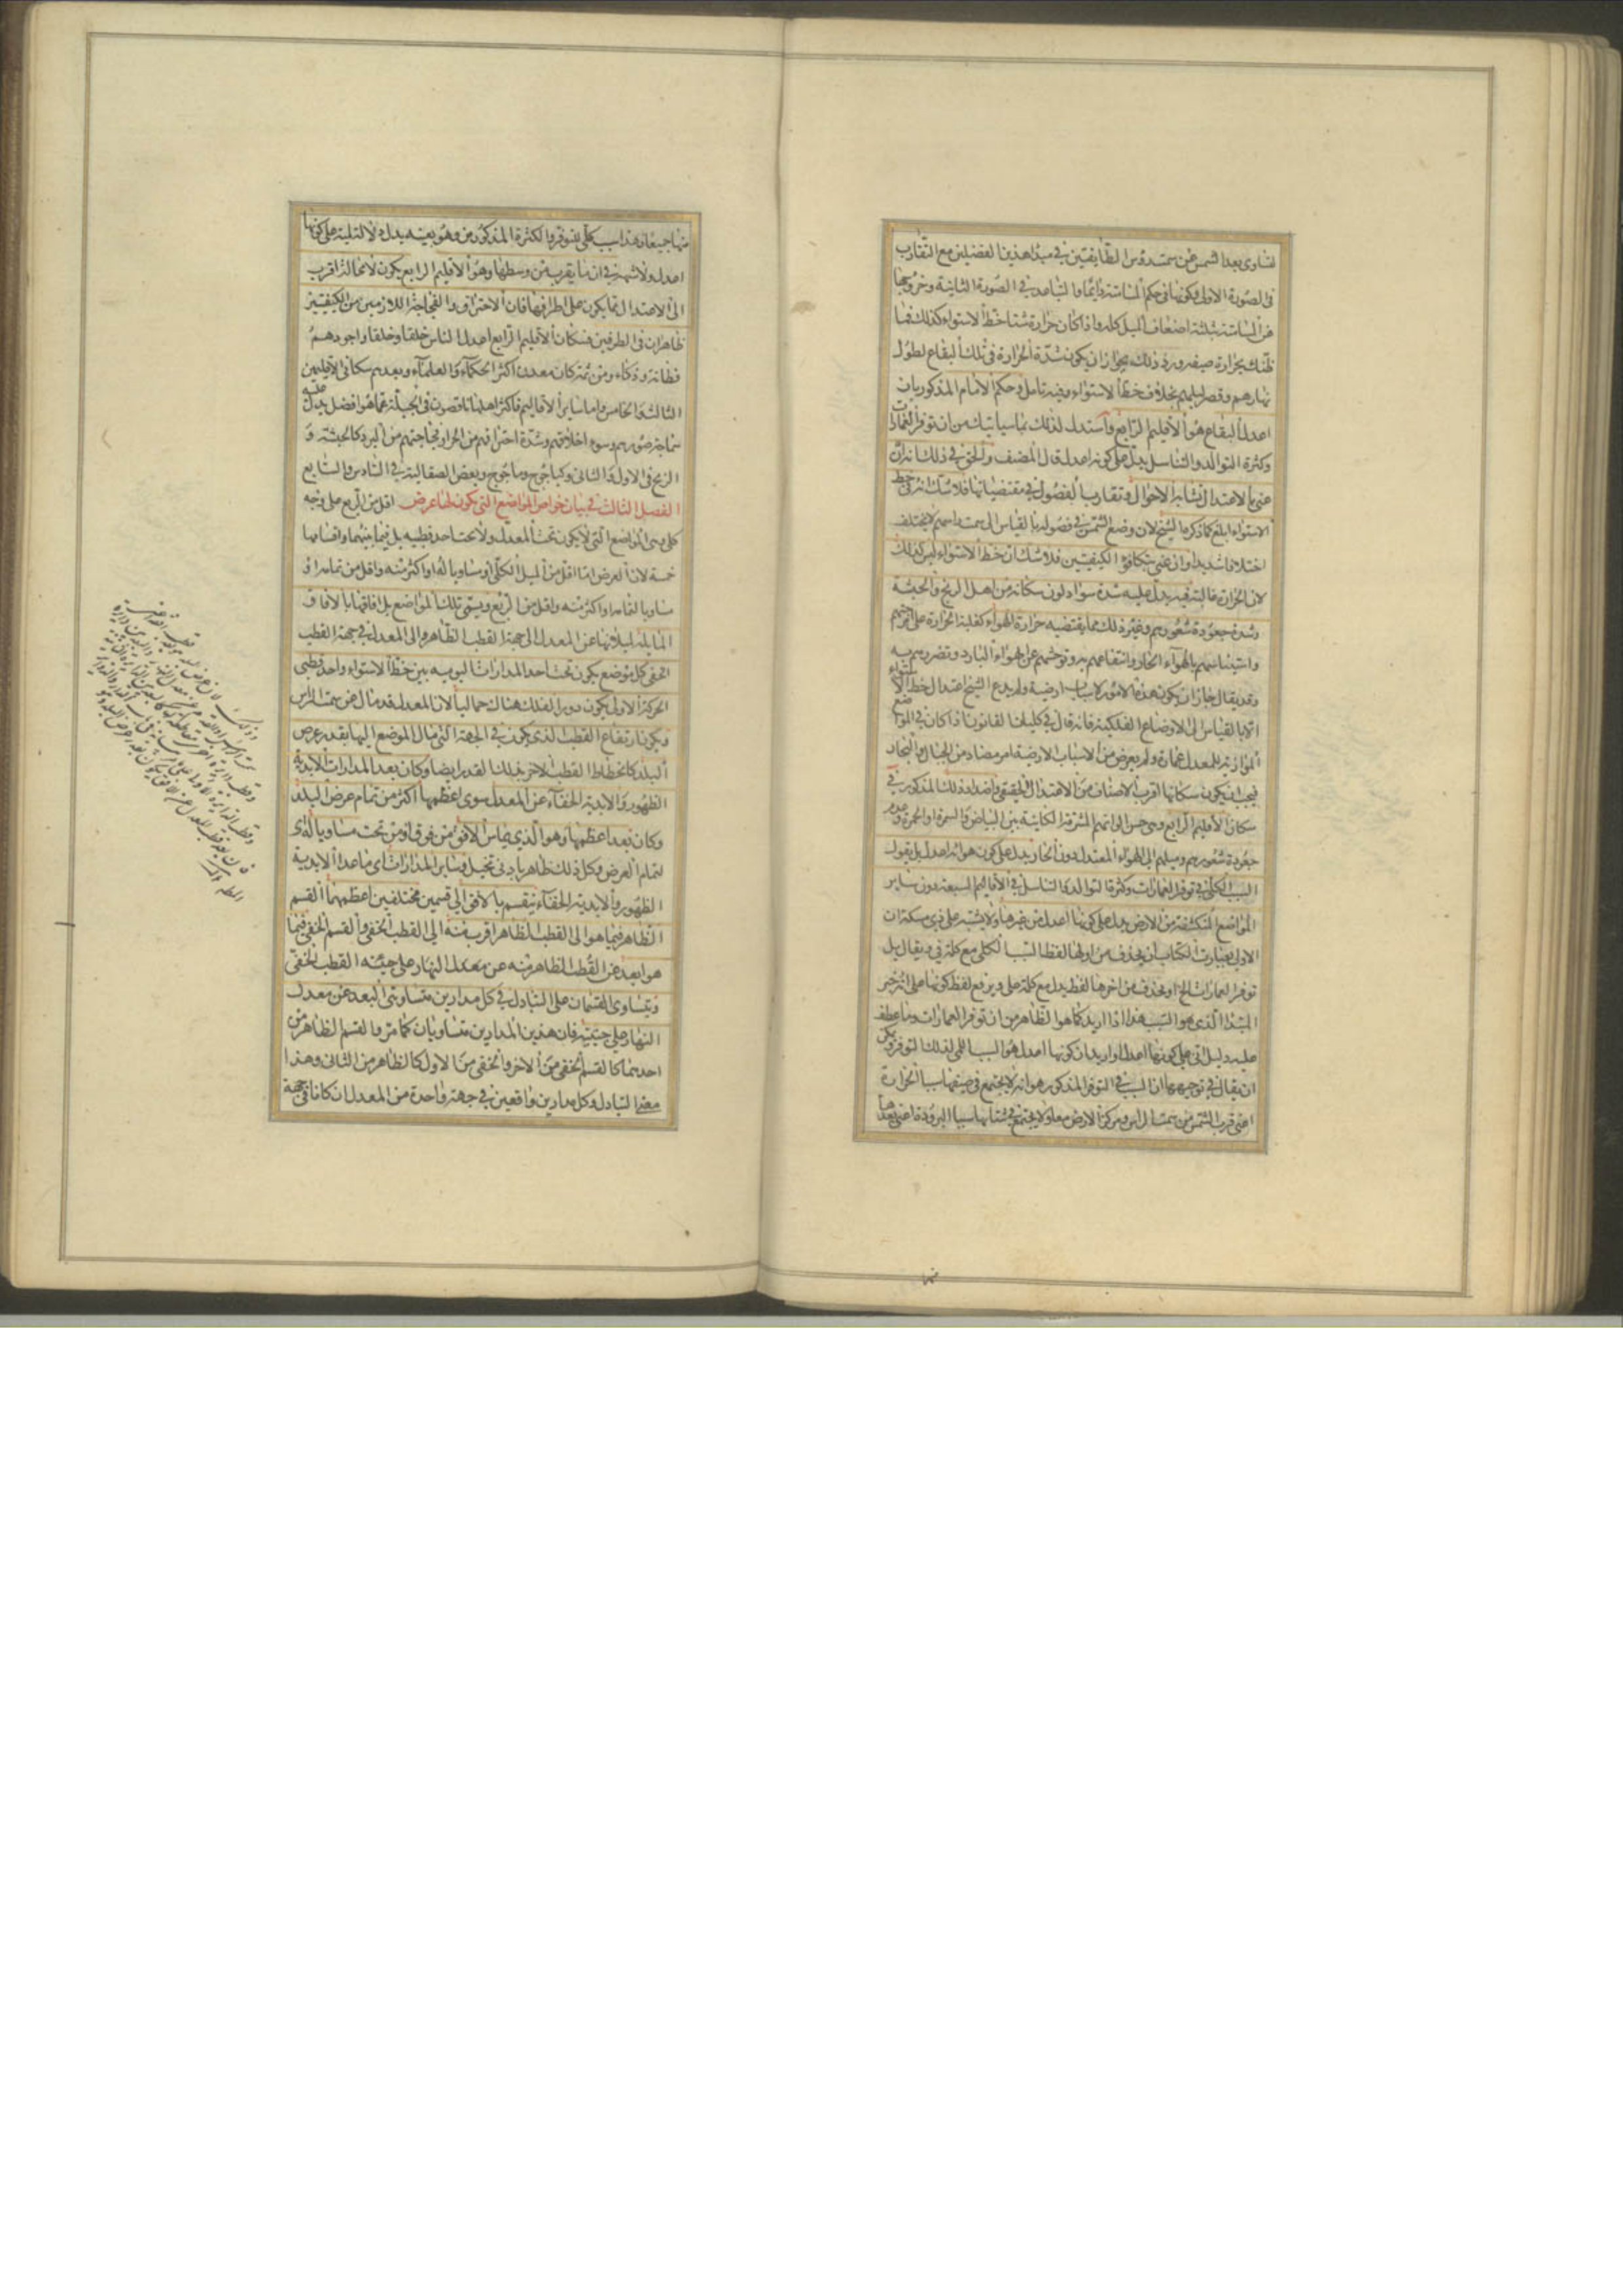 لتساوى بعد الشمس عن سمت رؤس الطايفتين فى مبدا هذين الفصلين مع التقارب
فى الصورة الاولى لكونها فى حكم المسامتة دايما والتباعد فى الصورة الثانية وخروجها
عن المسامتة بثلثة اضعاف الميل كله واذا كان حرارة شتا خط الاستواء كذلك فما
ظنك بحرارة صيفه ورد ذلك بجواز ان يكون شدة الحرارة فى تلك البقاع لطول
نهارهم وقصر ليلهم بخلاف خط الاستواء وفيه تامل وحكم الامام المذكور بان
اعدل البقاع هو الاقليم الرابع واستدل لذلك بما سياتيك من ان توفر العمارات
وكثرة التوالد والتناسل يدل على كونه اعدل قال المصنف والحق فى ذلك انه ان
عنى بالاعتدال تشابه الاحوال وتقارب الفصول فى مقتضياتها فلا شك انه فى خط
الاستواء ابلغ كما ذكره الشيخ لان وضع الشمس فى فصوله بالقياس الى سمت راسهم لا يختلف
اختلافا شديدا وان عنى تكافؤ الكيفيتين فلا شك ان خط الاستواء ليس كذلك
لان الحرارة غالبة فيه يدل عليه شدة سواد لون سكانه من اهل الزنج والحبشة
وشدة جعودة شعورهم وغير ذلك مما يقتضيه حرارة الهواء كغلبة الحرارة على امزجتهم
واستيناسهم بالهوآء الحار وانتفاعهم به وتوحشهم عن الهواء البارد وتضررهم به
وقد يقال جاز ان يكون هذه الامور لاسباب ارضية ولم يدع الشيخ اعتدال خط الاستواء
الا بالقياس الى الاوضاع الفلكية فانه قال فى كليات القانون اذا كان فى المواضع
الموازية للمعدل عمارة ولم يعرض من الاسباب الارضية امر مضاد من الجبال والبحار
فيجب ان يكون سكانها اقرب الاصناف من الاعتدال الحقيقى واضداد ذلك المذكور فى
سكان الاقليم الرابع وهى حسن الوانهم المشرقة الكاينة بين البياض والسمرة او الحمرة وعدم
جعودة شعورهم وميلهم الى الهواء المعتدل دون الحار يدل على كون هوائه اعدل بل يقول
السبب الكلى فى توفر العمارات وكثرة التوالد والتناسل فى الاقاليم السبعة دون ساير
المواضع المنكشفة من الارض يدل على كونها اعدل من غيرها ولا يشتبه على ذى مسكة ان
الاولى بعبارت الكتاب ان يحذف من اولها لفظ السبب الكلى مع كلمة فى ويقال بل
توفر العمارات الخ او يحذف من اخرها لفظ يدل مع كلمة على ويرفع لفظ كونها على انه خبر
المبتدا الذى هو السبب هذا اذا اريد كما هو الظاهر من ان توفر العمارات وما عطف
عليه دليل انى على كونها اعدل او اريد ان كونها اعدل هو السبب اللمى لذلك التوفر ويمكن
ان يقال فى توجيهها ان السبب فى التوفر المذكور هو انه لا يجتمع فى صيفها سببا الحرارة
اعنى قرب الشمس من سمت الراس ومركز الارض معا ولا يجتمع فى شتايها سببا البرودة اعنى بعدها
منها
منها جميعا وهذا سبب كلى للتوفر والكثرة المذكورين وهو بعينه يدل دلالة لمية على كونها
اعدل ولا شبهة فى ان ما يقرب من وسطها وهو الاقليم الرابع يكون لا محالة اقرب
الى الاعتدال مما يكون على اطرافها فان الاحتراق والفجاجة اللازمين من الكيفيتين
ظاهران فى الطرفين فسكان الاقليم الرابع اعدل الناس خلقا وخلقا واجودهم
فطانة وذكاء ومن ثمة كان معدن اكثر الحكمآء والعلمآء وبعدهم سكانى الاقليمين
الثالث والخامس واما ساير الاقاليم فاكثر اهلها ناقصون فى الجبلة عما هو افضل يدل عليه
سماجة صورهم وسوء اخلاقهم وشدة احتراقهم من الحر او فجاجتهم من البرد كالحبشة و
الزنج فى الاول والثانى وكياجوج وماجوج وبعض الصقالبة فى السادس والسابع
الفصل الثالث فى بيان خواص المواضع التى يكون لها عرض اقل من الربع على وجه
كلى وهى المواضع التى لا يكون تحت المعدل ولا تحت احد قطبيه بل فيما بينهما واقسامها
خمسة لان العرض اما اقل من الميل الكلى او مساويا له او اكثر منه واقل من تمامه او
مساويا لتمامه او اكثر منه واقل من الربع ويسمى تلك المواضع بل افاقها بالافاق
المايلة لميلانها عن المعدل الى جهة القطب الظاهر والى المعدل فى جهة القطب
الخفى كل موضع يكون تحت احد المدارات اليومية بين خط الاستواء واحد قطبى
الحركة الاولى يكون دور الفلك هناك حمايليا لان المعدل قد مال عن سمت الراس
ويكون ارتفاع القطب الذى يكون فى الجهة التى مال الموضع اليها بقدر عرض
البلد كانحطاط القطب الاخر بذلك القدر ايضا وكان بعد المدارات الابدية
الظهور والابدية الخفآء عن المعدل سوى اعظمها اكثر من تمام عرض البلد
وكان بعد اعظمها وهو الذى يماس الافق من فوق او من تحت مساويا له اى
لتمام العرض وكل ذلك ظاهر بادنى تخيل وساير المدارات اى ما عدا الابدية
الظهور والابدية الخفآء ينقسم بالافق الى قسمين مختلفين اعظمهما القسم
الظاهر فيما هو الى القطب الظاهر اقرب منه الى القطب الخفى والقسم الخفى فيما
هو ابعد عن القطب الظاهر منه عن معدل النهار على جنبه القطب الخفى
ويتساوى القسمان على التبادل فى كل مدارين متساويى البعد عن معدل
النهار على جنبتيه فان هذين المدارين متساويان كما مر والقسم الظاهر من
احدهما كالقسم الخفى من الاخر والخفى من الاول كالظاهر من الثانى وهذا
معنى التبادل وكل مدارين واقعين فى جهة واحدة من المعدل ان كانا فى جهة